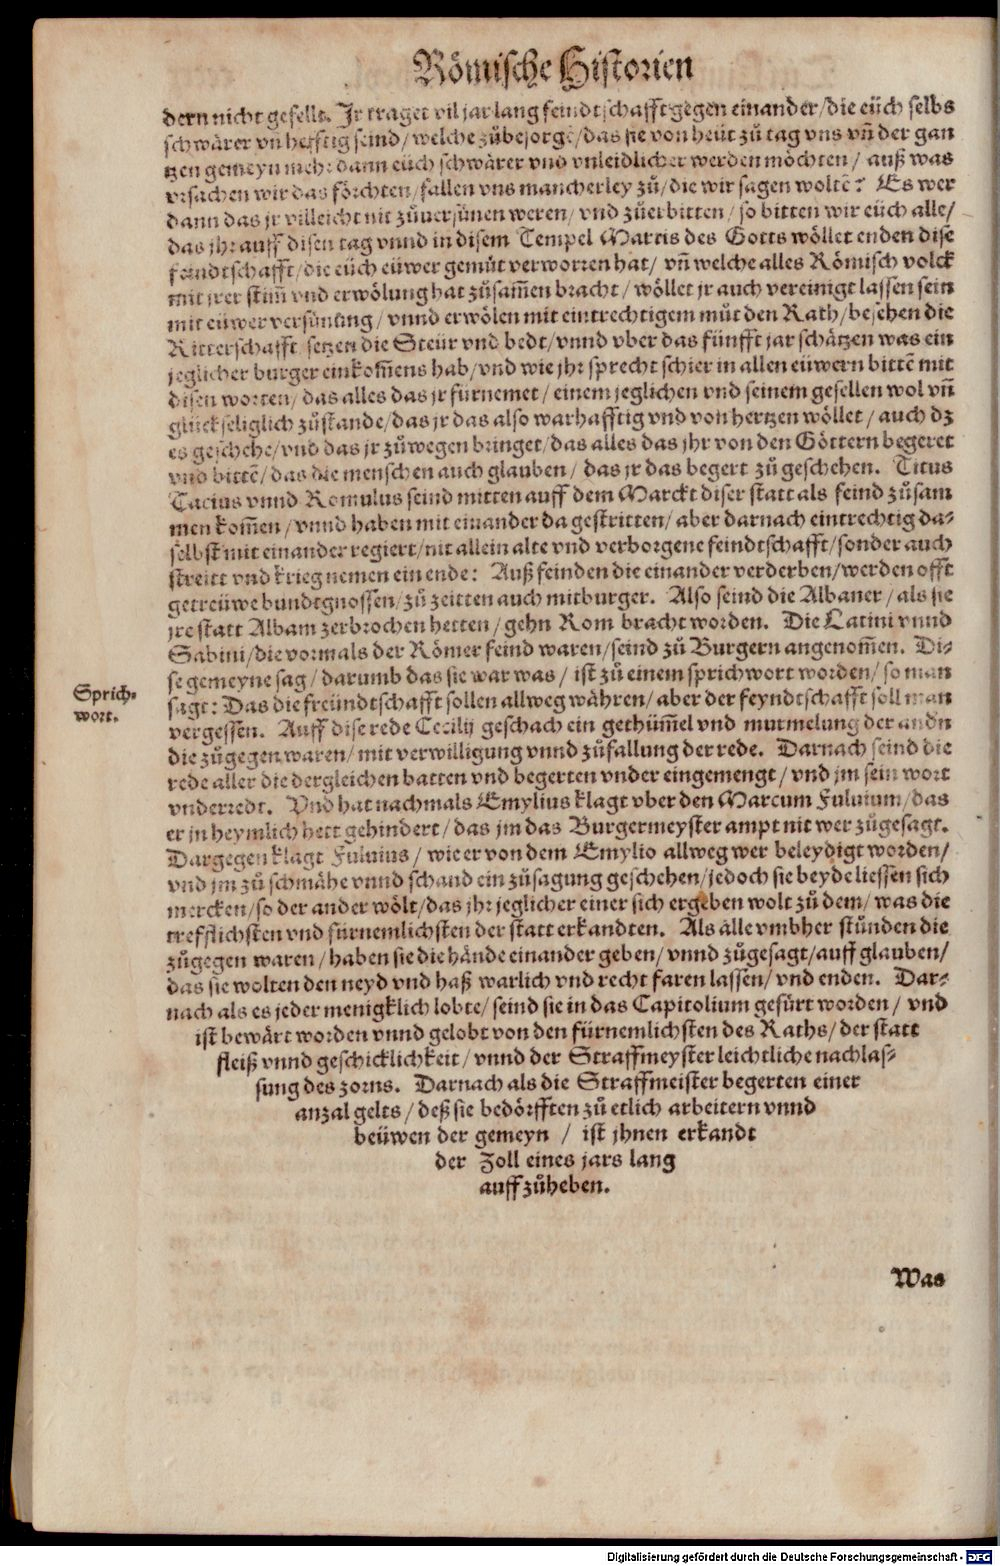 Römische Historien
dern nicht gesellt. Jr traget vil jar lang feindtschafft gegen einander/die eüch selbs
schwärer vñ hefftig seind/welche zůbesorgē/das sie von heüt zů tag vns vñ der gan
tzen gemeyn mehr dann eüch schwärer vnd vnleidlicher werden möchten/ auß was
vrsachen wir das förchten/fallen vns mancherley zů/die wir sagen woltē? Es wer
dann das jr villeicht nit zůuersünen weren/ vnd zůerbitten/ so bitten wir eüch alle/
das jhr auff disen tag vnnd in disem Tempel Martis des Gotts wöllet enden dise
feindtschafft/die eüch eüwer gemüt verworren hat/ vñ welche alles Römisch volck
mit jrer stim̃ vnd erwölung hat zůsam̃en bracht/ wöllet jr auch vereinigt lassen sein
mit eüwer versünung/ vnnd erwölen mit eintrechtigem můt den Rath/besehen die
Ritterschafft setzen die Steür vnd bedt/vnnd vber das fünfft jar schätzen was ein
jeglicher burger einkom̃ens hab/vnd wie jhr sprecht schier in allen eüwern bittē mit
disen worten/ das alles das jr fürnemet/ einem jeglichen vnd seinem gesellen wol vñ
glückseliglich zůstande/das jr das also warhafftig vnd von hertzen wöllet/ auch dz
es geschehe/vnd das jr zůwegen bringet/das alles das jhr von den Göttern begeret
vnd bittē/das die menschen auch glauben/ das jr das begert zů geschehen. Titus
Tacius vnnd Romulus seind mitten auff dem Marckt diser statt als feind zůsam
men kom̃en/vnnd haben mit einander da gestritten/aber darnach eintrechtig da⸗
selbst mit einander regiert/nit allein alte vnd verborgene feindtschafft/sonder auch
streitt vnd krieg nemen ein ende: Auß feinden die einander verderben/werden offt
getreüwe bundtgnossen/zů zeitten auch mitburger. Also seind die Albaner/als sie
jre statt Albam zerbrochen hetten/gehn Rom bracht worden. Die Latini vnnd
Sabini/die vormals der Römer feind waren/seind zů Burgern angenom̃en. Di⸗
se gemeyne sag/darumb das sie war was/ ist zů einem sprichwort worden/so man
Sprich⸗
wort.
sagt: Das die freündtschafft sollen allweg währen/aber der feyndtschafft soll man
vergessen. Auff dise rede Cecilij geschach ein gethüm̃el vnd murmelung der andn
die zůgegen waren/mit verwilligung vnnd zůfallung der rede. Darnach seind die
rede aller die dergleichen batten vnd begerten vnder eingemengt/vnd jm sein wort
vnderredt. Vnd hat nachmals Emylius klagt vber den Marcum Fuluium/das
er jn heymlich hett gehindert/das jm das Burgermeyster ampt nit wer zůgesagt.
Dargegen klagt Fuluius/ wie er von dem Emylio allweg wer beleydigt worden/
vnd jm zů schmähe vnnd schand ein zůsagung geschehen/jedoch sie beyde liessen sich
mercken/so der ander wölt/das jhr jeglicher einer sich ergeben wolt zů dem/was die
trefflichsten vnd fürnemlichsten der statt erkandten. Als alle vmbher stůnden die
zůgegen waren/haben sie die hände einander geben/vnnd zůgesagt/auff glauben/
das sie wolten den neyd vnd haß warlich vnd recht faren lassen/vnd enden. Dar⸗
nach als es jeder menigklich lobte/seind sie in das Capitolium gefürt worden/ vnd
ist bewärt worden vnnd gelobt von den fürnemlichsten des Raths/der statt
fleiß vnnd geschicklichkeit/vnnd der Straffmeyster leichtliche nachlas⸗
sung des zorns. Darnach als die Straffmeister begerten einer
anzal gelts/deß sie bedörfften zů etlich arbeitern vnnd
beüwen der gemeyn/ ist jhnen erkandt
der Zoll eines jars lang
auffzůheben.
Was
Digitalisierung gefördert durch die Deutsche Forschungsgemeinschaft - DFG